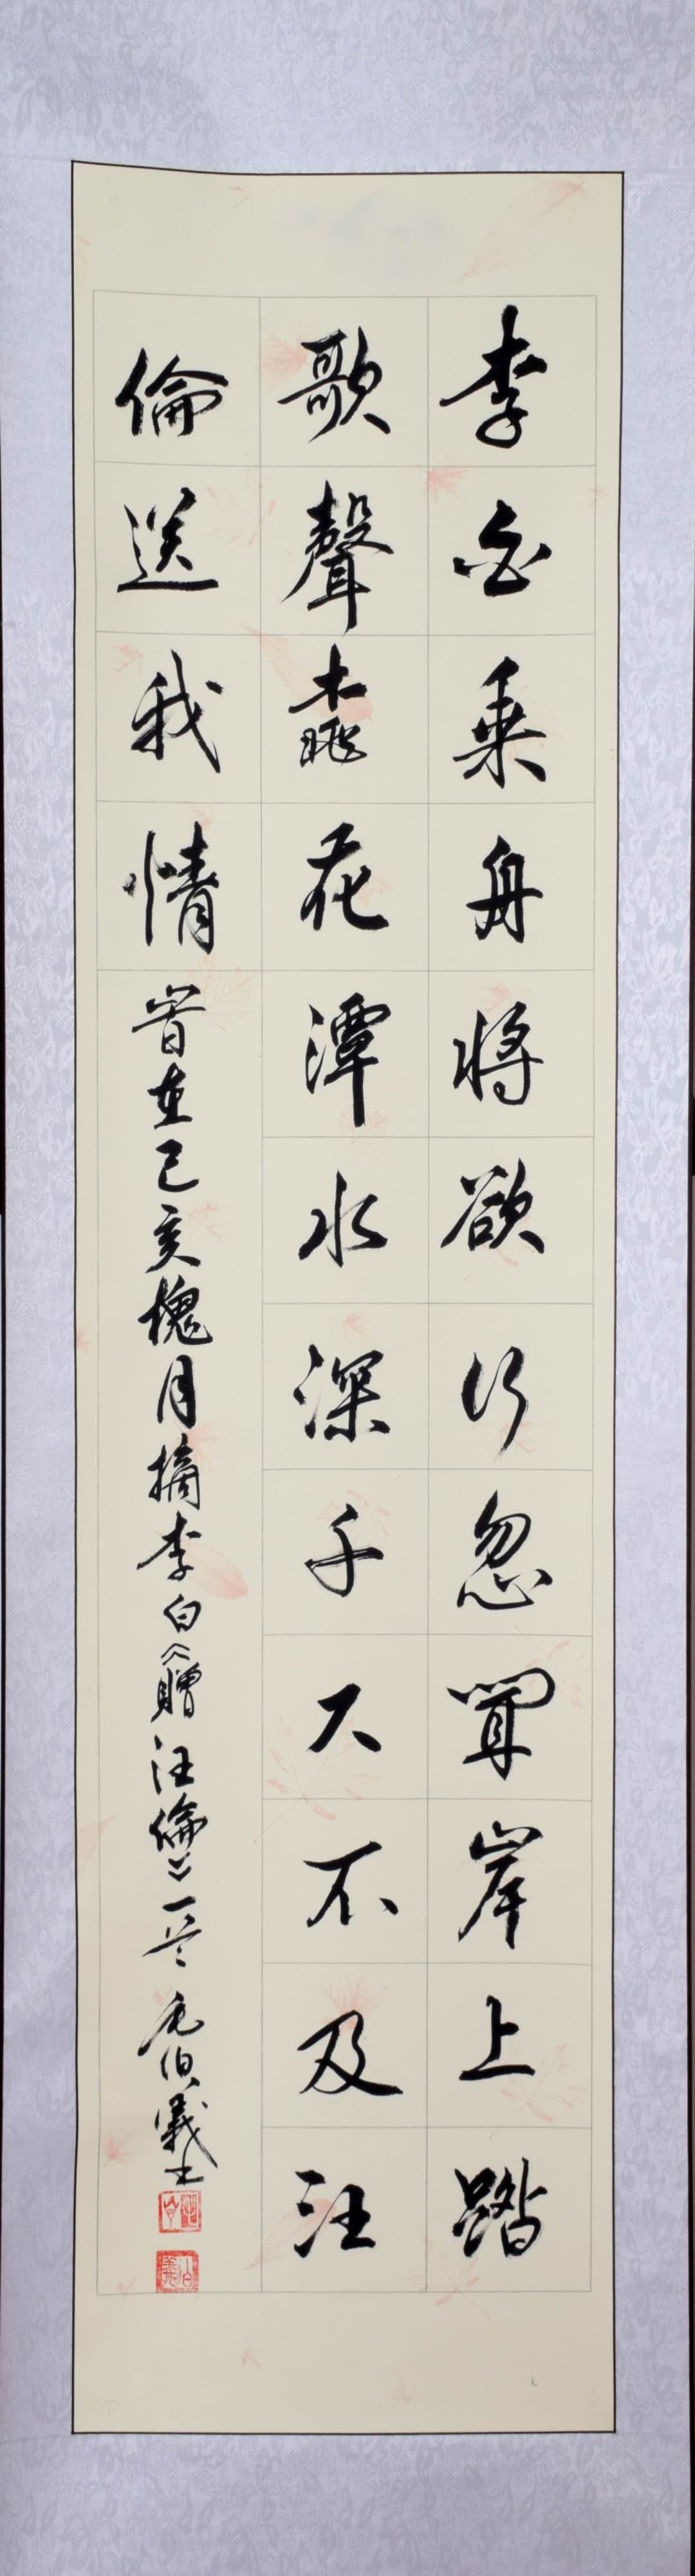 李白乘舟將欲行忽聞岸上踏
歌聲桃花潭水深千尺不及汪
倫送我情 峕在己亥槐月摘李白《贈汪倫》一首